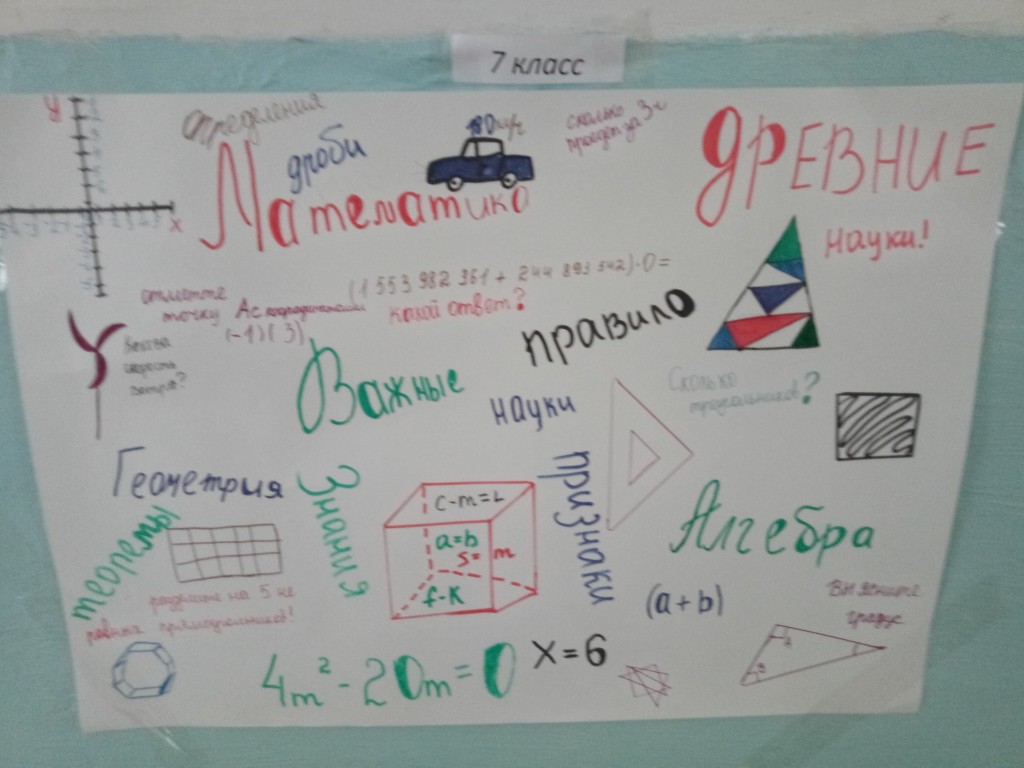 7 класс
y
Определения
дроби
сколько
проедет за 3 ч
ДРЕВНИЕ
Математика
x
науки!
(1 553 982 361 + 244 893 542)·0=
отметьте
точку А с координатами
(-1)(3)
какой ответ?
правило
скорость
ветра?
Важные
науки
Сколько
треугольников?
Геометрия
Знания
признаки
теоремы
c-m=L
a=b
S=
m
f-K
Алгебра
на 5 не
равных прямоугольников!
(a+b)
Выясните
градус
4m²-20m=0
x=6